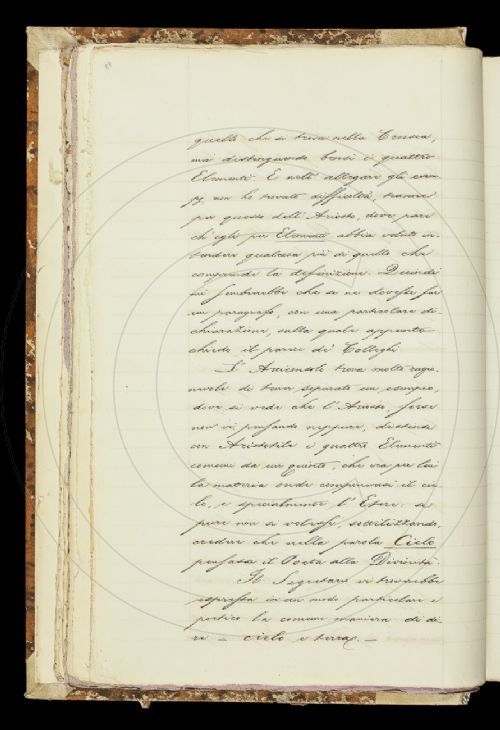 quella che si trova nella Crusca,
ma distinguendo bensì i quattro
Elementi. E nell'allegare gli esem-
pj, non ho trovato difficoltà, tranne
per questo dell'Ariosto, dove pare
ch'egli per Elementi abbia voluto in-
tendere qualcosa più di quello che
comprende la definizione. Quindi
mi sembrerebbe che se ne dovesse far
un paragrafo, con una particolare di-
chiarazione, sulla quale appunto
chiedo il parere de' Colleghi.
L'Arciconsolo trova molto ragio-
nevole di tener separato un esempio,
dove si vede che l'Ariosto, forse
non vi pensando neppure, distinse
con Aristotile i quattro Elementi
comuni da un quinto, che era per lui
la materia onde componevasi il cie-
lo, e specialmente l'Etere: se
pure non si volesse, sottilizzando,
credere che nella parola Cielo
pensasse il Poeta alla Divinità.
Il Segretario vi troverebbe
espressa in un modo particolare e
poetico la comune maniera di di-
re — cielo e terra. —